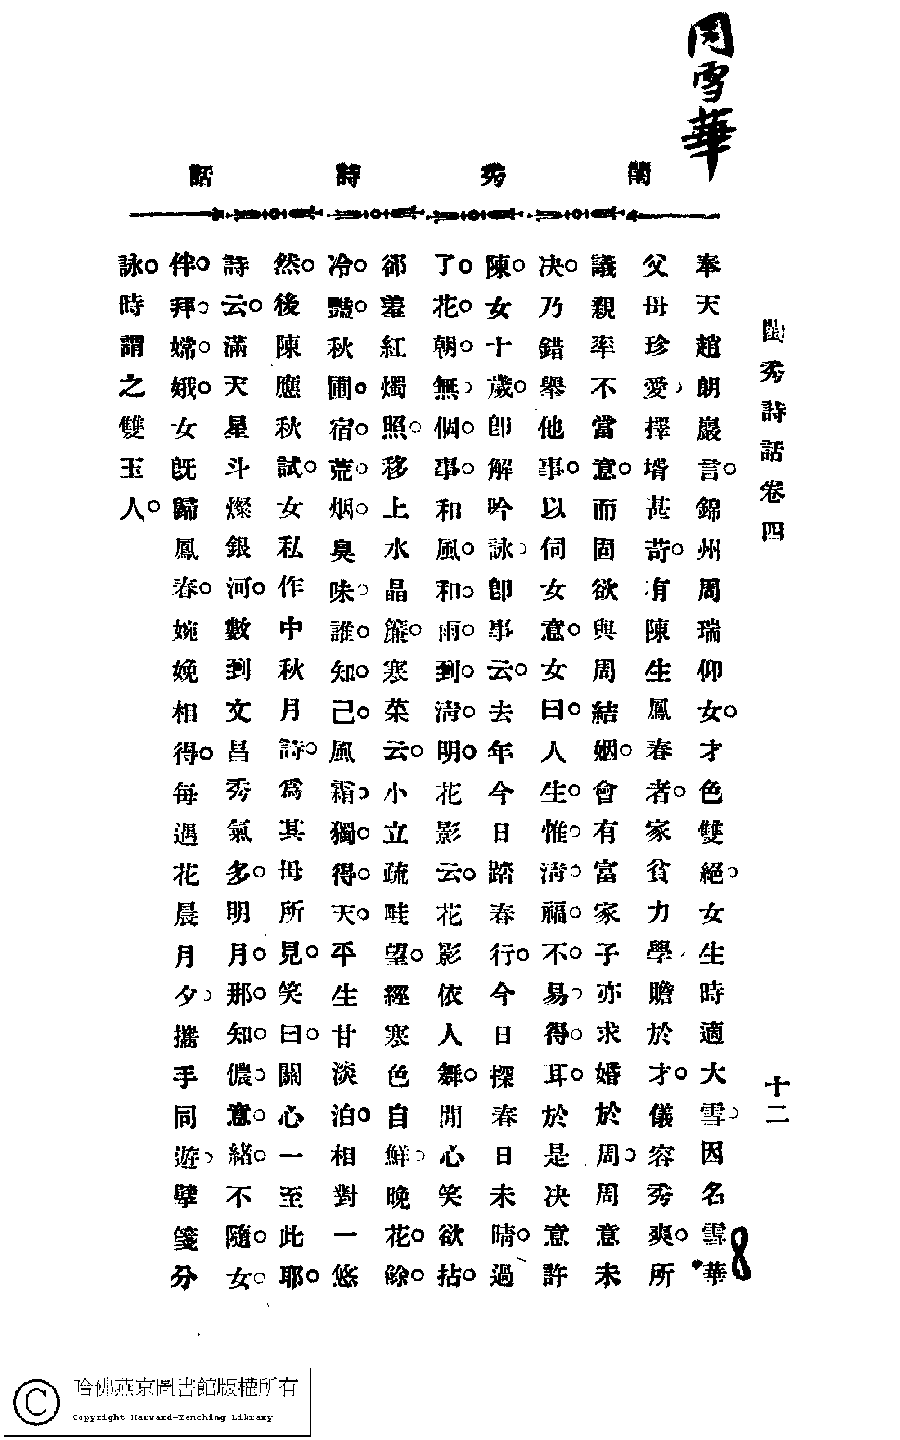 周雪華
閨秀詩話
閨秀詩話卷四
十二
奉天趙朗巖言。錦州周瑞仰女。才色雙絕。女生時適大雪。因名雪華
8
父母珍愛。擇壻甚苛。有陳生鳳春者。家貧力學。贍於才。儀容秀爽。所
議親率不當意。而固欲與周結姻。會有富家子亦求婚於周。周意未
决。乃錯舉他事。以伺女意。女曰。人生惟清福不易得耳。於是决意許
陳。女十歲。卽解吟詠。卽事云。去年今日踏春行。今日探春日未晴。過
了花朝無個事。和風和雨到清明。花影云。花影依人舞。閒心笑欲拈。
郤羞紅燭照。移上水晶簾。寒菜云。小立疏畦望。經寒色自鮮。晚花餘
冷豔。秋圃宿荒烟。臭味誰知己。風霜獨得天。平生甘淡泊。相對一悠
然。後陳應秋試。女私作中秋月詩。爲其母所見。笑曰。關心一至此耶。
詩云。滿天星斗燦銀河。數到文昌秀氣多。明月那知儂意緒。不隨女
伴拜嫦娥。女旣歸鳳春。婉娩相得。每遇花晨月夕。攜手同遊。擘箋分
詠。時謂之雙玉人。
哈佛燕京圖書館版權所有
Copyright Harvard-Yenching Library